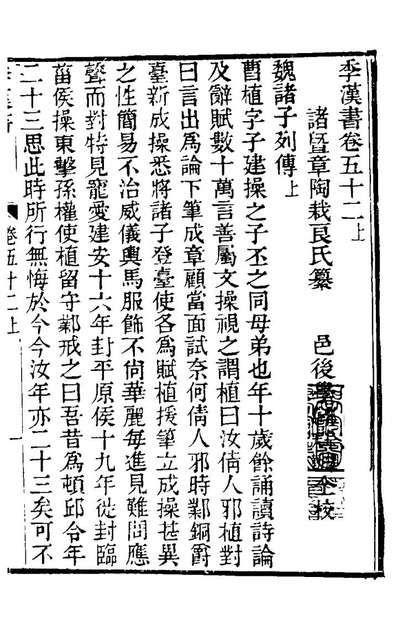 季漢書卷五十二上
諸暨章陶栽艮氏纂 邑後學 仝校
魏諸子列傳上
曹植字子建操之子丕之同母弟也年十歲餘誦讀詩論
及辭賦數十萬言善屬文操視之謂植曰汝倩人邪植對
曰言出爲論下筆成章顧當面試奈何倩人邪時鄴銅爵
臺新成操悉將諸子登臺使各爲賦植援筆立成操甚異
之性簡易不治威儀輿馬服飾不尚華麗每進見難問應
聲而對特見寵愛建安十六年封平原侯十九年徙封臨
菑侯操東擊孫權使植留守鄴戒之曰吾昔爲頓邱令年
二十三思此時所行無悔於今今汝年亦二十三矣可不
卷五十二上 一